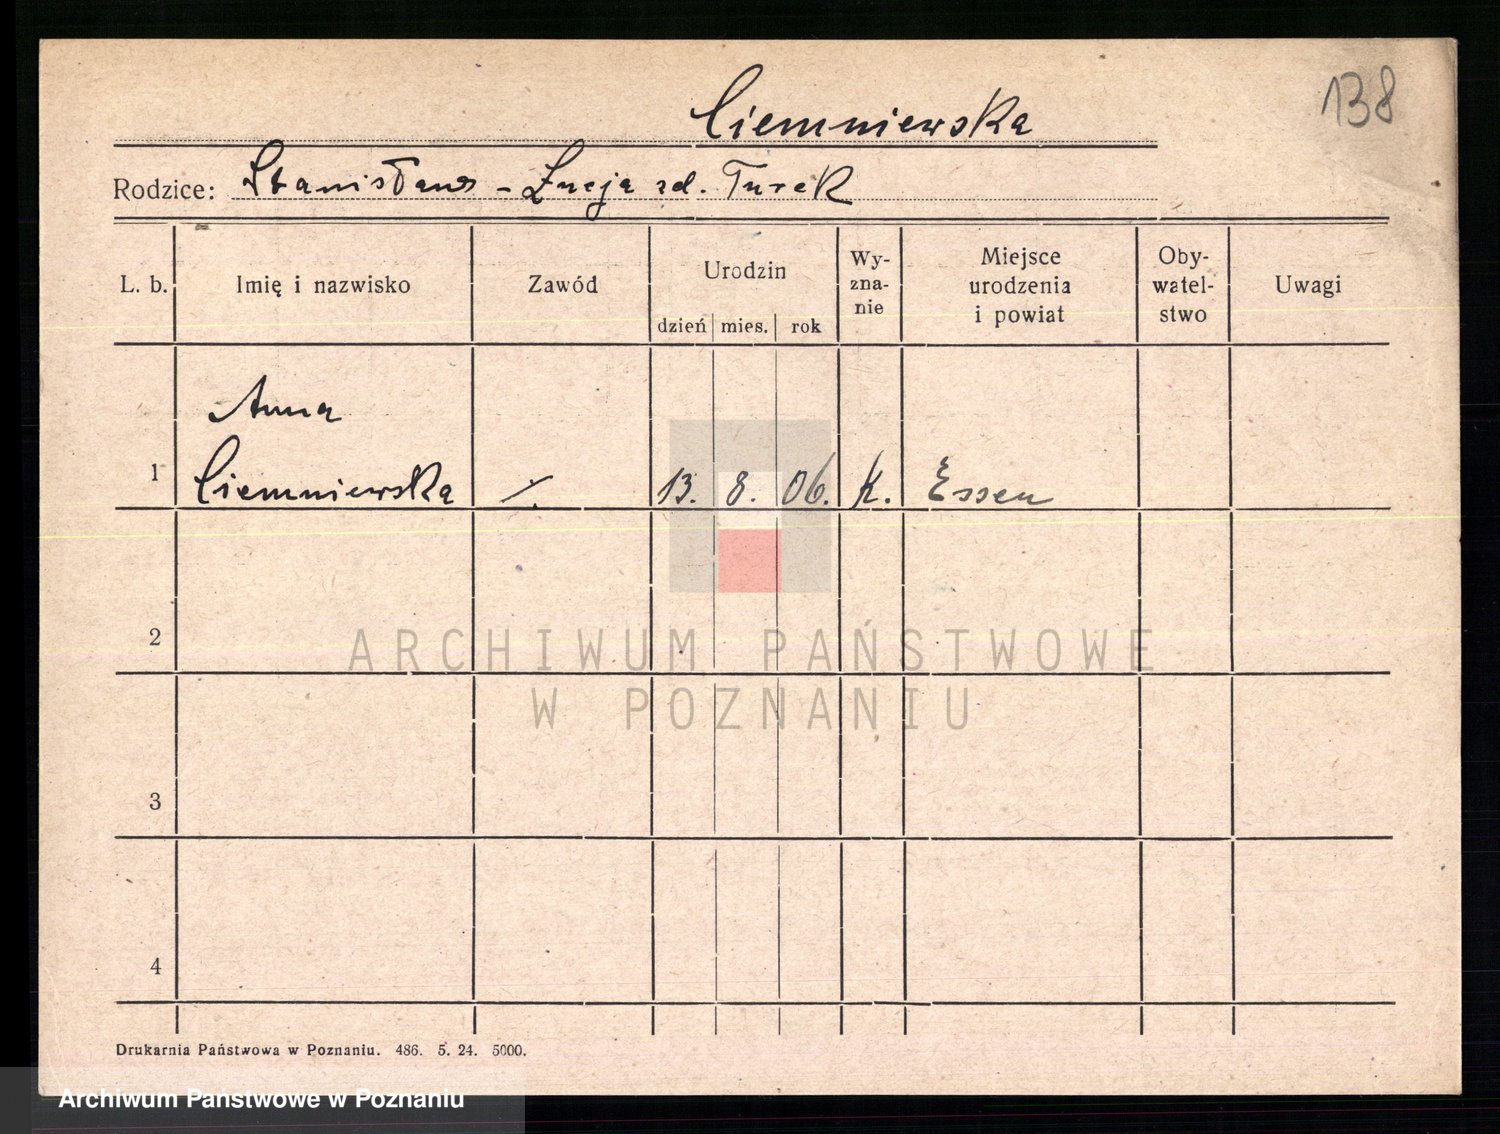 138
Ciemniewska
Rodzice: Stanisław - Łucja zd. Turek
L. b. Imię i nazwisko Zawód Urodzin Wy-zna-nie Miejsce urodzenia i powiat Oby-watel-stwo Uwagi
dzień mies. rok
Anna
1 Ciemniewska /. 13. 8. 06. K. Essen
2
ARCHIWUM PAŃSTWOWE
W POZNANIU
3
4
Drukarnia Państwowa w Poznaniu. 486. 5. 24. 5000.
Archiwum Państwowe w Poznaniu